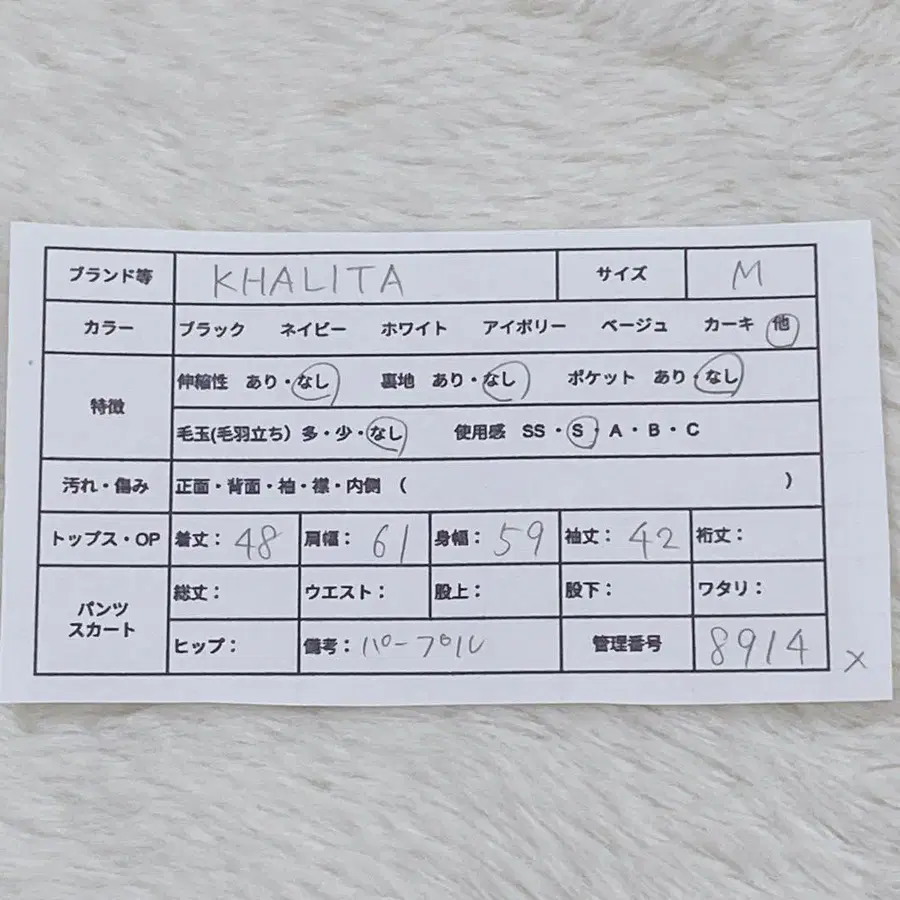 ブランド等 KHALITA サイズ M
カラー ブラック ネイビー ホワイト アイボリー ベージュ カーキ 他
特徴 伸縮性 あり・なし 裏地 あり・なし ポケット あり・なし
毛玉(毛羽立ち) 多・少・なし 使用感 SS・S・A・B・C
汚れ・傷み 正面・背面・袖・襟・内側 ( )
トップス・OP 着丈: 48 肩幅: 61 身幅: 59 袖丈: 42 裄丈:
パンツ
スカート
総丈: ウエスト: 股上: 股下: ワタリ:
ヒップ: 備考: パープル 管理番号 8914 ×